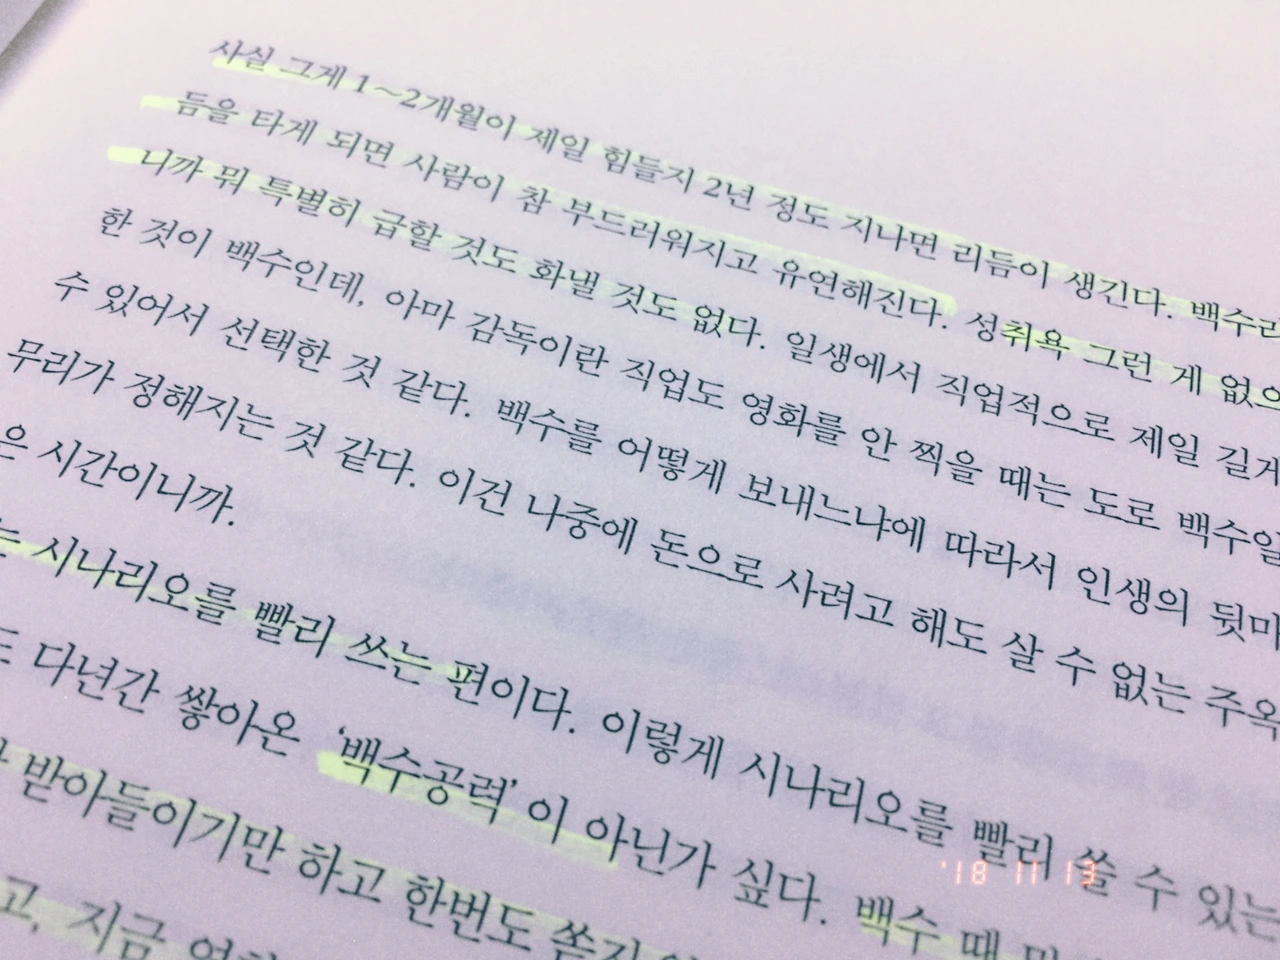 사실 그게 1~2개월이 제일 힘들지 2년 정도 지나면 리듬이 생긴다. 백수리
듬을 타게 되면 사람이 참 부드러워지고 유연해진다. 성취욕 그런 게 없으
니까 뭐 특별히 급할 것도 화낼 것도 없다. 일생에서 직업적으로 제일 길게
한 것이 백수인데, 아마 감독이란 직업도 영화를 안 찍을 때는 도로 백수일
수 있어서 선택한 것 같다. 백수를 어떻게 보내느냐에 따라서 인생의 뒷마
무리가 정해지는 것 같다. 이건 나중에 돈으로 사려고 해도 살 수 없는 주옥
은 시간이니까.
는 시나리오를 빨리 쓰는 편이다. 이렇게 시나리오를 빨리 쓸 수 있는
도 다년간 쌓아온 '백수공력'이 아닌가 싶다. 백수 때
받아들이기만 하고 한번도
고, 지금
'18 11 13